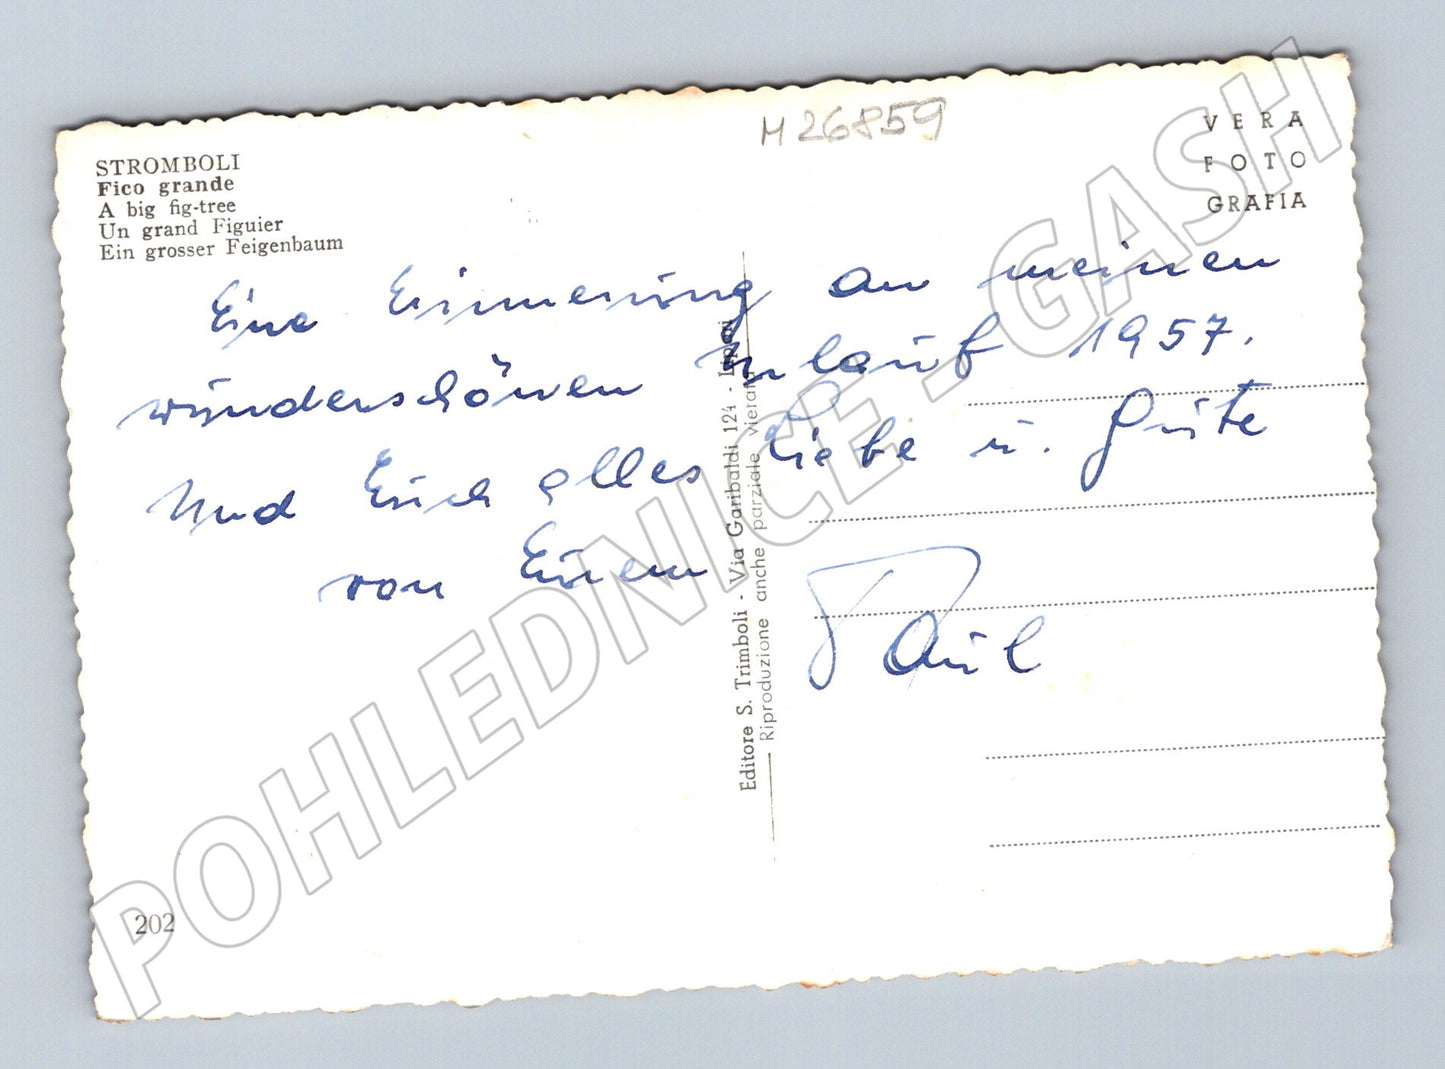 M 26859
VERA
FOTO
GRAFIA
STROMBOLI
Fico grande
A big fig-tree
Un grand Figuier
Ein grosser Feigenbaum
Eine Erinnerung an meinen
wunderschönen Urlaub 1957.
Und Euch alles Liebe u. Gute
von Eurem
Paul
Editore S. Trimboli - Via Garibaldi 124 - Lipari
Riproduzione anche parziale vietata
202
POHLEDNICE - GASH